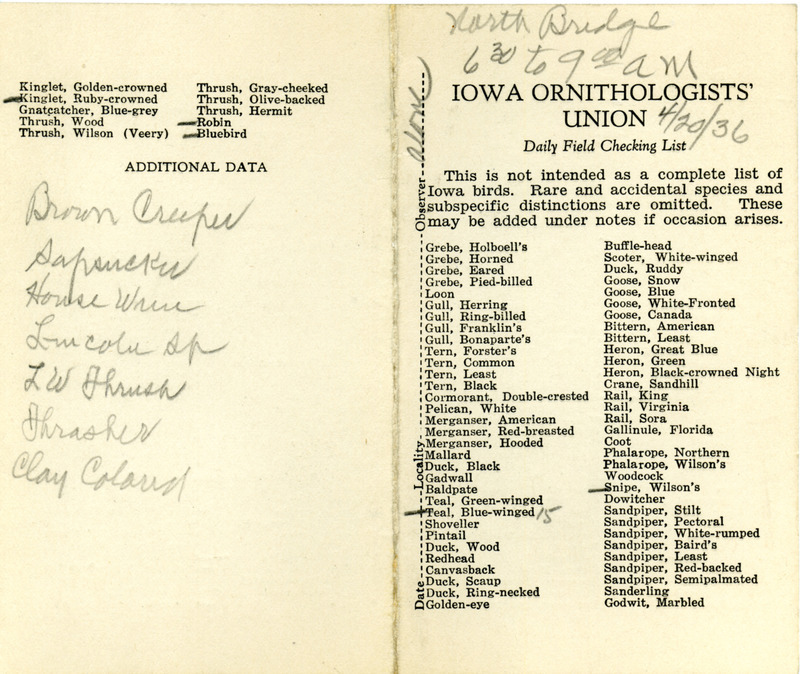 Kinglet, Golden-crowned
Kinglet, Ruby-crowned
Gnatcatcher, Blue-grey
Thrush, Wood
Thrush, Wilson (Veery)
Thrush, Gray-cheeked
Thrush, Olive-backed
Thrush, Hermit
Robin
Bluebird
ADDITIONAL DATA
Brown Creeper
Sapsucker
House Wren
Lincoln Sp
L W Thrush
Thrasher
Clay Colored
North Bridge
6 30 to 9 00 a M
IOWA ORNITHOLOGISTS'
UNION 4/20/36
Daily Field Checking List
Date Locality Observer alone
This is not intended as a complete list of
Iowa birds. Rare and accidental species and
subspecific distinctions are omitted. These
may be added under notes if occasion arises.
Grebe, Holboell's
Grebe, Horned
Grebe, Eared
Grebe, Pied-billed
Loon
Gull, Herring
Gull, Ring-billed
Gull, Franklin's
Gull, Bonaparte's
Tern, Forster's
Tern, Common
Tern, Least
Tern, Black
Cormorant, Double-crested
Pelican, White
Merganser, American
Merganser, Red-breasted
Merganser, Hooded
Mallard
Duck, Black
Gadwall
Baldpate
Teal, Green-winged
Teal, Blue-winged 15
Shoveller
Pintail
Duck, Wood
Redhead
Canvasback
Duck, Scaup
Duck, Ring-necked
Golden-eye
Buffle-head
Scoter, White-winged
Duck, Ruddy
Goose, Snow
Goose, Blue
Goose, White-Fronted
Goose, Canada
Bittern, American
Bittern, Least
Heron, Great Blue
Heron, Green
Heron, Black-crowned Night
Crane, Sandhill
Rail, King
Rail, Virginia
Rail, Sora
Gallinule, Florida
Coot
Phalarope, Northern
Phalarope, Wilson's
Woodcock
Snipe, Wilson's
Dowitcher
Sandpiper, Stilt
Sandpiper, Pectoral
Sandpiper, White-rumped
Sandpiper, Baird's
Sandpiper, Least
Sandpiper, Red-backed
Sandpiper, Semipalmated
Sanderling
Godwit, Marbled